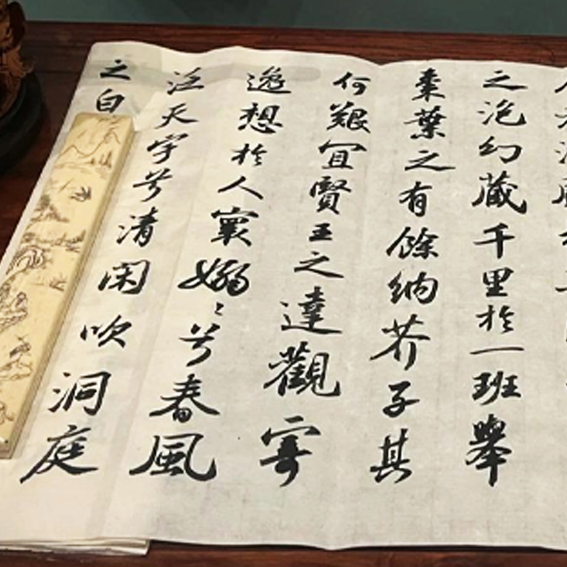 之泡幻藏千里於一班舉
棗葉之有餘納芥子其
何艱宜賢王之達觀寄
逸想於人寰嫋〻兮春風
泛天宇兮清閑吹洞庭
之白